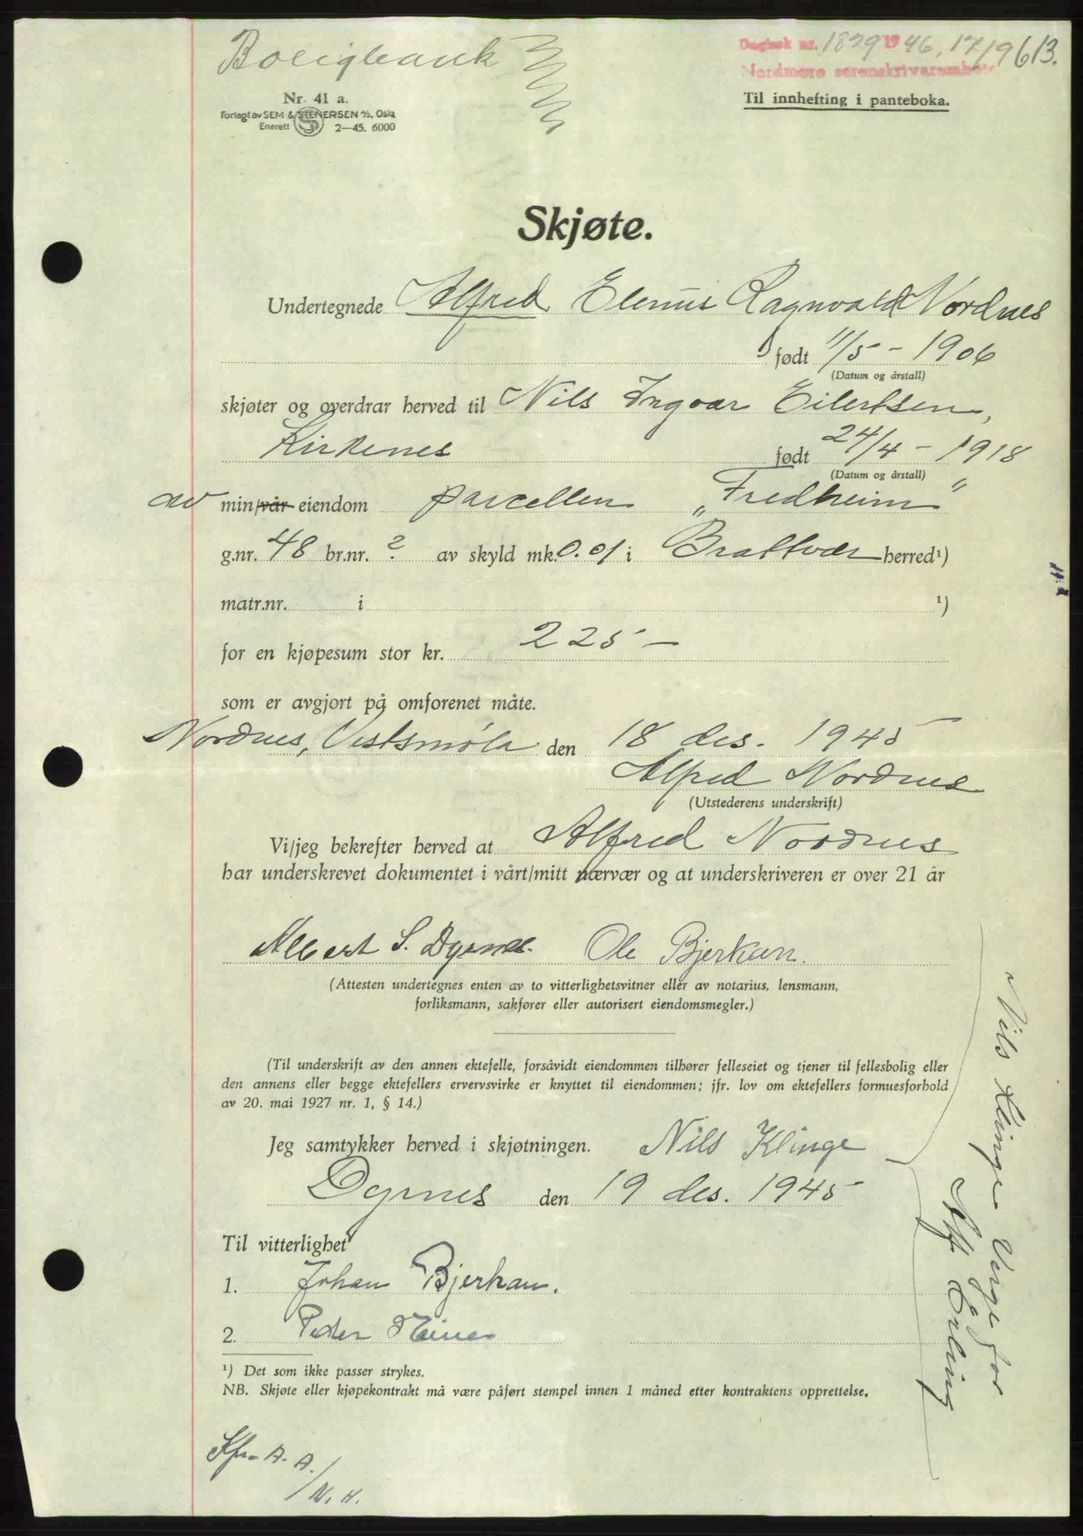 Boligbank
Dagbok nr. 1829 1946, 17/9 613.
Nordmøre sorenskriverembete
Nr. 41 a.
Forlagt av SEM & STENERSEN A/S, Oslo
Enerett 2—45. 6000
Til innhefting i panteboka.
Skjøte.
Undertegnede Alfred Elenius Ragnvald Nordnes
født 11/5 - 1906
(Datum og årstall)
skjøter og overdrar herved til Nils Ingvar Eilertsen,
Kirkenes født 24/4 - 1918
(Datum og årstall)
av min/vår eiendom parcellen „Fredheim"
g.nr. 48 br.nr. ? av skyld mk. 0.01 i Brattvær herred¹)
matr.nr. i ¹)
for en kjøpesum stor kr. 225 —
som er avgjort på omforenet måte.
Nordnes, Vestsmøla den 18 des. 1945
Alfred Nordnes
(Utstederens underskrift)
Vi/jeg bekrefter herved at Alfred Nordnes
har underskrevet dokumentet i vårt/mitt nærvær og at underskriveren er over 21 år
Albert S. Dyrnes. Ole Bjerkan.
(Attesten undertegnes enten av to vitterlighetsvitner eller av notarius, lensmann,
forliksmann, sakfører eller autorisert eiendomsmegler.)
(Til underskrift av den annen ektefelle, forsåvidt eiendommen tilhører felleseiet og tjener til fellesbolig eller
den annens eller begge ektefellers ervervsvirke er knyttet til eiendommen; jfr. lov om ektefellers formuesforhold
av 20. mai 1927 nr. 1, § 14.)
Jeg samtykker herved i skjøtningen. Nils Klinge
Dyrnes den 19 des. 1945
Til vitterlighet
1. Johan Bjerkan.
2. Peder
¹) Det som ikke passer strykes.
NB. Skjøte eller kjøpekontrakt må være påført stempel innen 1 måned efter kontraktens opprettelse.
Nils Klinge Verge for
Alf Erling
Kfr. A. A.
/N. H.